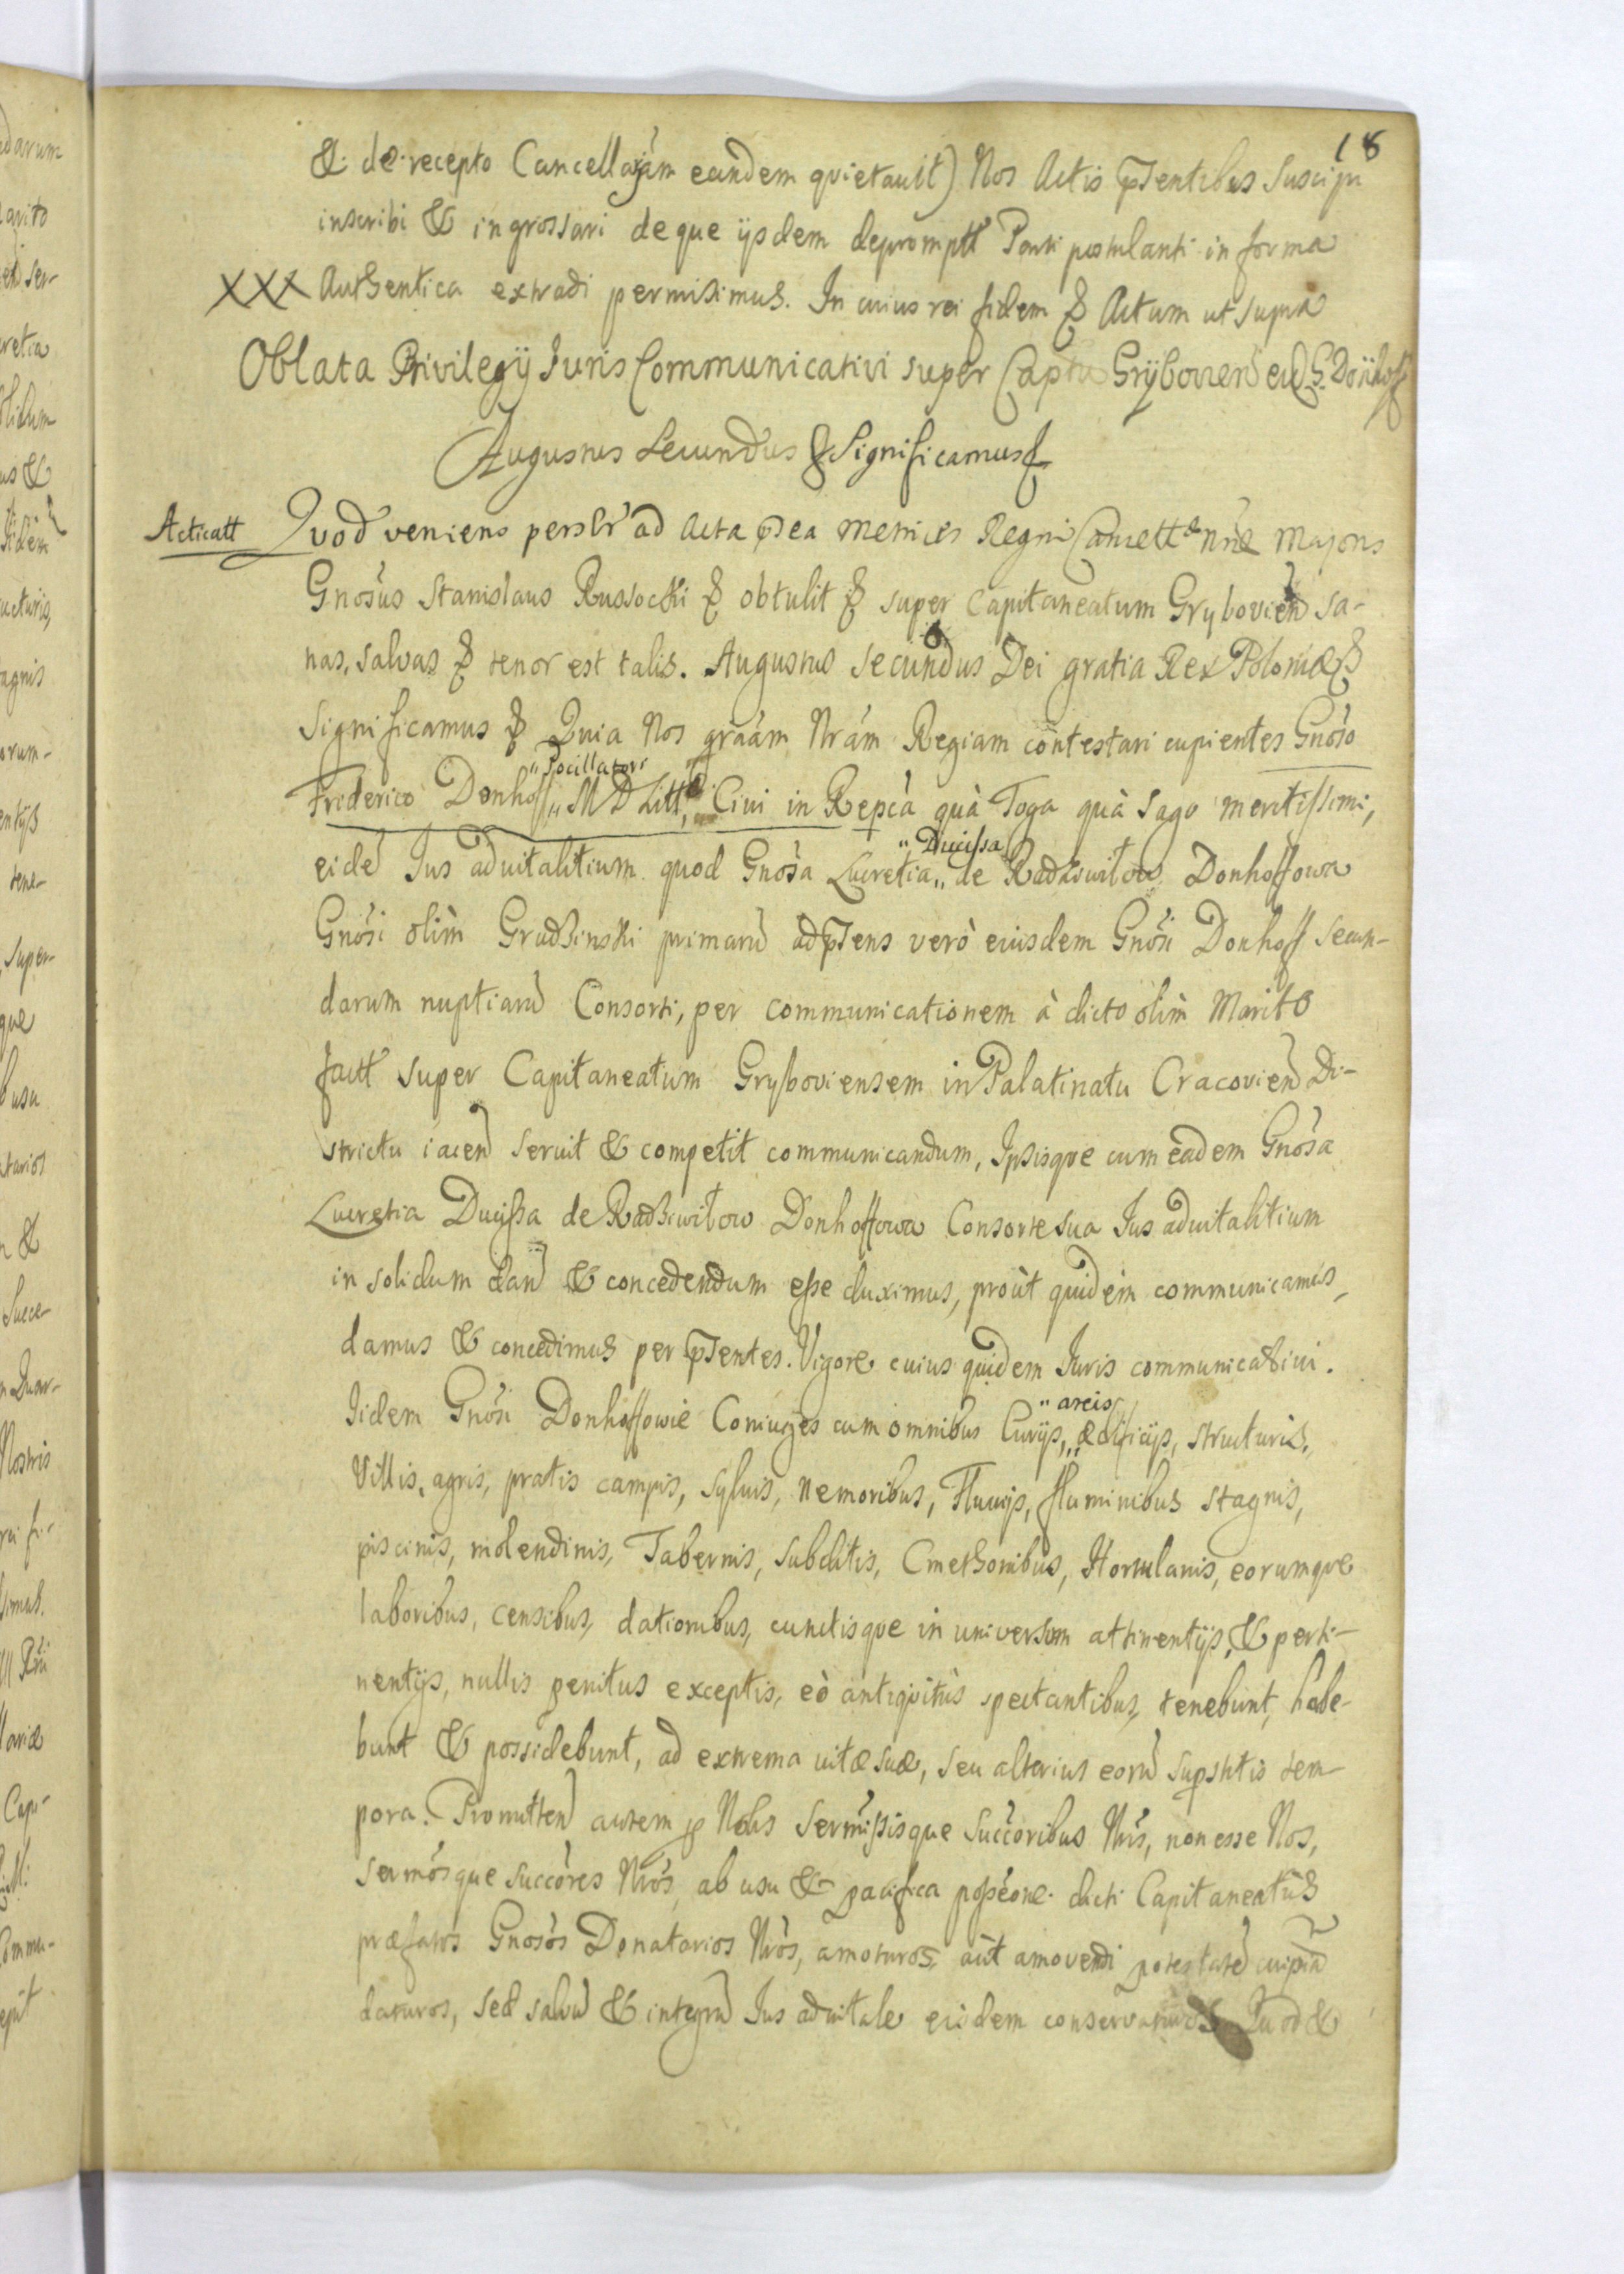 18
&. de recepto Cancellariam eandem quietauit) Nos Actis pñtentibus suscipi
inscribi & ingrossari deque ijsdem deprompt Parti postulanti in forma
XXX Authentica extradi permisimus. In cuius rei fidem & Actum ut supra
Oblata Privilegij Juris Communicativi super Captu Gryboviend eid G. Dönhoff
Augustus Secundus & Significamus &
Acticatt Quod veniens persltr ad Acta pñtea Metrices Regni Cancell Nrae Majoris
Gnosus Stanislaus Russocki & obtulit & super Capitaneatum Grybovien sa-
nas, salvas & tenor est talis. Augustus Secundus Dei gratia Rex Poloniae &
Significamus & Quia Nos graam Nram Regiam contestari cupientes Gnoso
Friderico Donhoff " Pocillatori " M D Litt, Civi in Repca quà Toga quà Sago meritissimi,
eide Jus aduitalitium quod Gnosa Lucretia " Ducissa " de Radziwilow Donhoffowa
Gnosi olim Grudzinski primarũ ad pñtens verò eiusdem Gnosi Donhoff secun-
darum nuptiarũ Consorti, per communicationem à dicto olim Marito
factt super Capitaneatum Gryboviensem in Palatinatu Cracovien Di-
strictu iacen seruit & competit communicandum, Ipsisque cum eadem Gnosa
Lucretia Ducissa de Radziwilow Donhoffowa Consorte sua Jus aduitalitium
in solidum dand & concedendum esse duximus, proùt quidem communicamus,
damus & concedimus per pñtentes. Vigore cuius quidem Juris communicatiui.
Iidem Gnosi Donhoffowie Coniuges cum omnibus Curijs, " areis " aedificijs, structuris,
Villis, agris, pratis campis, syluis, nemoribus, Fluuijs, fluminibus stagnis,
piscinis, molendinis, Tabernis, subditis, Cmethonibus, Hortulanis, eorumque
laboribus, censibus, dationibus, cunctisque in universum attinentijs, & perti-
nentijs, nullis penitus exceptis, eò antiquitùs spectantibus, tenebunt, habe-
bunt & possidebunt, ad extrema uitae suae, seu alterius eorũ supstitis tem-
pora. Promitten autem p Nobis Sermissisque Succoribus Nris, non esse Nos,
Sermosque Succores Nros, ab usu & pacifica posseone dicti Capitaneatus
praefatos Gnosos Donatarios Nros, amoturos, aut amovendi potestate cuipia
daturos, sed salvũ & integrũ Jus aduitale eisdem conservaturos Quod &